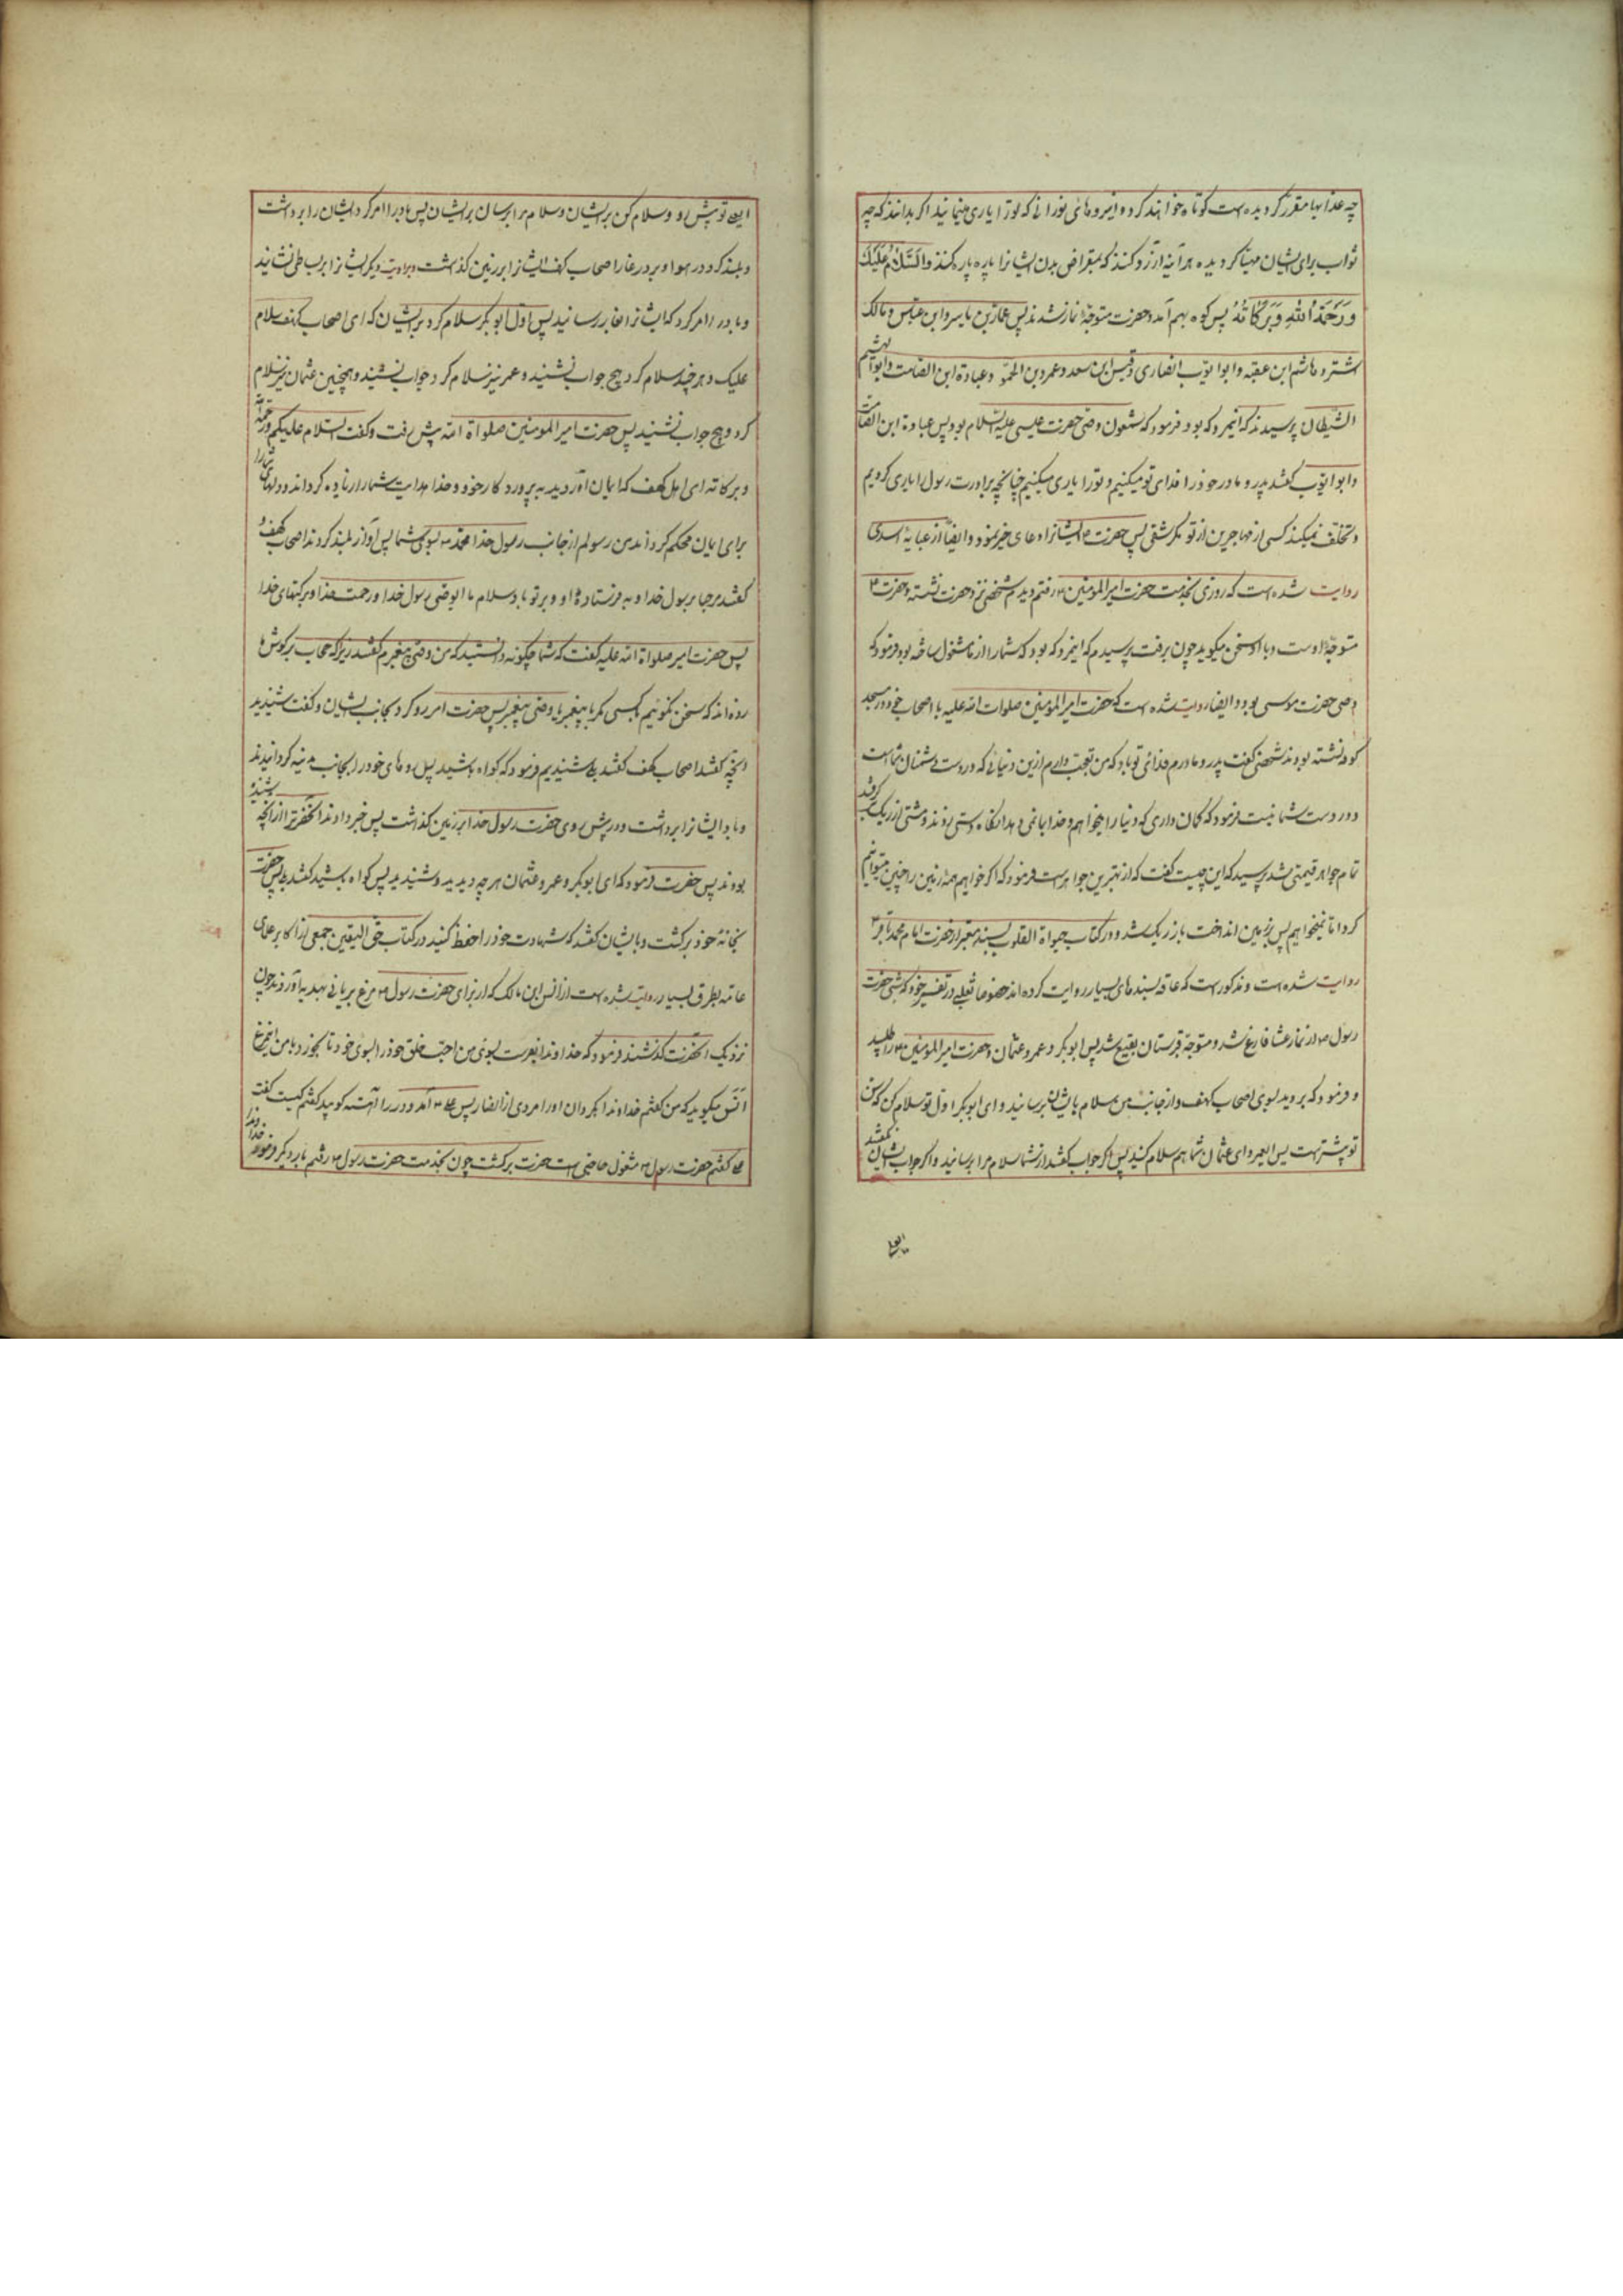 چه عذابها مقرر گردیده است کوتاه خواهند کرد و این روهای نورانی که تو را یاری مینمایند اگر بدانند که چه
ثواب برای ایشان مهیا گردیده هر آینه آرزو کنند که بمقراض بدن ایشانرا پاره پاره کنند والسّلام علیک
ورحمة الله وبرکاته پس کوه بهم آمد و حضرت متوجه نماز شدند پس عمار بن یاسر و ابن عباس و مالک
اشتر و هاشم ابن عقبه و ابو ایوب انصاری و قیس ابن سعد و عمرو بن الحمق و عبادة ابن الصامت و ابو الهشیم
التیهان پرسیدند که این مرد که بود فرمود که شمعون وصی حضرت عیسی علیه السلام بود پس عبادة ابن الصامت
و ابو ایوب گفتند پدر و مادر خود را فدای تو میکنیم و تو را یاری میکنیم چنانچه برادرت رسول را یاری کردیم
و تخلف نمیکند کسی از مهاجرین از تو مگر شقی پس حضرت ایشانرا دعای خیر نمود و ایضاً از عبایهٔ اسدی
روایت شده است که روزی بخدمت حضرت امیر المومنین رفتم دیدم شخصی نزد حضرت نشسته و حضرت
متوجه اوست و با او سخن میگوید چون برفت پرسیدم که این مرد که بود که شما را از ما مشغول ساخته بود فرمود که
وصی حضرت موسی بود و ایضا روایت شده است که حضرت امیر المومنین صلوات الله علیه با اصحاب خود در مسجد
کوفه نشسته بودند شخصی گفت پدر و مادرم فدای تو باد که من تعجب دارم ازین دنیائی که در دست دشمنان شماست
و در دست شما نیست فرمود که گمان داری که دنیا را میخواهم و خدا بما نمی دهد آنگاه دستی زدند و مشتی از ریگ گرفتند
تمام جواهر قیمتی شد پرسید که این چیست گفت که از بهترین جواهر است فرمود که اگر خواهیم همه زمین را چنین میتوانیم
کرد اما نمیخواهیم پس بزمین انداخت باز ریگ شد و در کتاب حیوة القلوب بسند معتبر از حضرت امام محمد باقر
روایت شده است و مذکور است که عامه بسندهای بسیار روایت کرده اند خصوصا ثعلبی در تفسیر خود که شبی حضرت
رسول از نماز عشا فارغ شد و متوجه قبرستان بقیع شد پس ابوبکر و عمر و عثمان و حضرت امیر المومنین را طلبید
و فرمود که بروید بسوی اصحاب کهف و از جانب من سلام بایشان برسانید و ای ابوبکر اول تو سلام کن که سن
تو بیشتر است پس ای عمر و ای عثمان شما هم سلام کنید پس اگر جواب گفتند از شما سلام مرا برسانید و اگر جواب نگفتند
ایعلی
ایعلی تو پیش رو و سلام کن بر ایشان و سلام مرا برسان بر ایشان پس باد را امر کرد ایشان را برداشت
و بلند کرد در هوا و بر در غار اصحاب کهف ایشانرا بر زمین گذاشت و بروایت دیگر ایشانرا بر بساطی نشانید
و باد را امر کرد که ایشانرا بغار رسانید پس اول ابوبکر سلام کرد بر ایشان که ای اصحاب کهف سلام
علیک و هر چند سلام کرد هیچ جواب نشنید و عمر نیز سلام کرد جواب نشنید و همچنین عثمان نیز سلام
کرد و هیچ جواب نشنید پس حضرت امیر المومنین صلواة الله پیش رفت و گفت السّلام علیکم و رحمة الله
و برکاته ای اهل کهف که ایمان آوردید به پروردگار خود و خدا هدایت شما را زیاده گرداند و دلهای شما را
برای ایمان محکم گرداند من رسولم از جانب رسول خدا محمد بسوی شما پس آواز بلند کردند اصحاب کهف و
گفتند مرحبا برسول خدا و به فرستادهٔ او و بر تو باد سلام ما ای وصی رسول خدا و رحمت خدا و برکتهای خدا
پس حضرت امیر صلواة الله علیه گفت که شما چگونه دانستید که من وصی پیغمبرم گفتند زیرا که حجاب بر گوش ما
زده اند که سخن نگوئیم بکسی مگر با پیغمبر یا وصی پیغمبر پس حضرت امیر رو کرد بجانب ایشان و گفت شنیدید
آنچه گفتند اصحاب کهف گفتند بلی شنیدیم فرمود که گواه باشید پس روهای خود را بجانب مدینه گردانیدند
و باد ایشانرا برداشت و در پیش روی حضرت رسول خدا بر زمین گذاشت پس خبر دادند آنحضرترا از آنچه شنیده
بودند پس حضرت فرمود که ای ابوبکر و عمر و عثمان هر چه دیدید و شنیدید پس گواه باشید گفتند بلی پس حضرت
بخانه خود برگشت و بایشان گفتند که شهادت خود را حفظ کنید در کتاب حق الیقین جمعی از اکابر علمای
عامه بطرق بسیار روایت شده است از انس ابن مالک که از برای حضرت رسول مرغ بریانی بهدیه آوردند چون
نزدیک آنحضرت گذاشتند فرمود که خداوندا بفرست بسوی من احب خلق خود را بسوی خود تا بخورد با من این مرغ
انس میگوید که من گفتم خداوندا بگردان او را مردی از انصار پس علی آمد و در را آهسته کوبید گفتم کیست گفت
علی گفتم حضرت رسول مشغول حاجتی است حضرت برگشت چون بخدمت حضرت رسول رفتم بار دیگر فرمود خداوندا